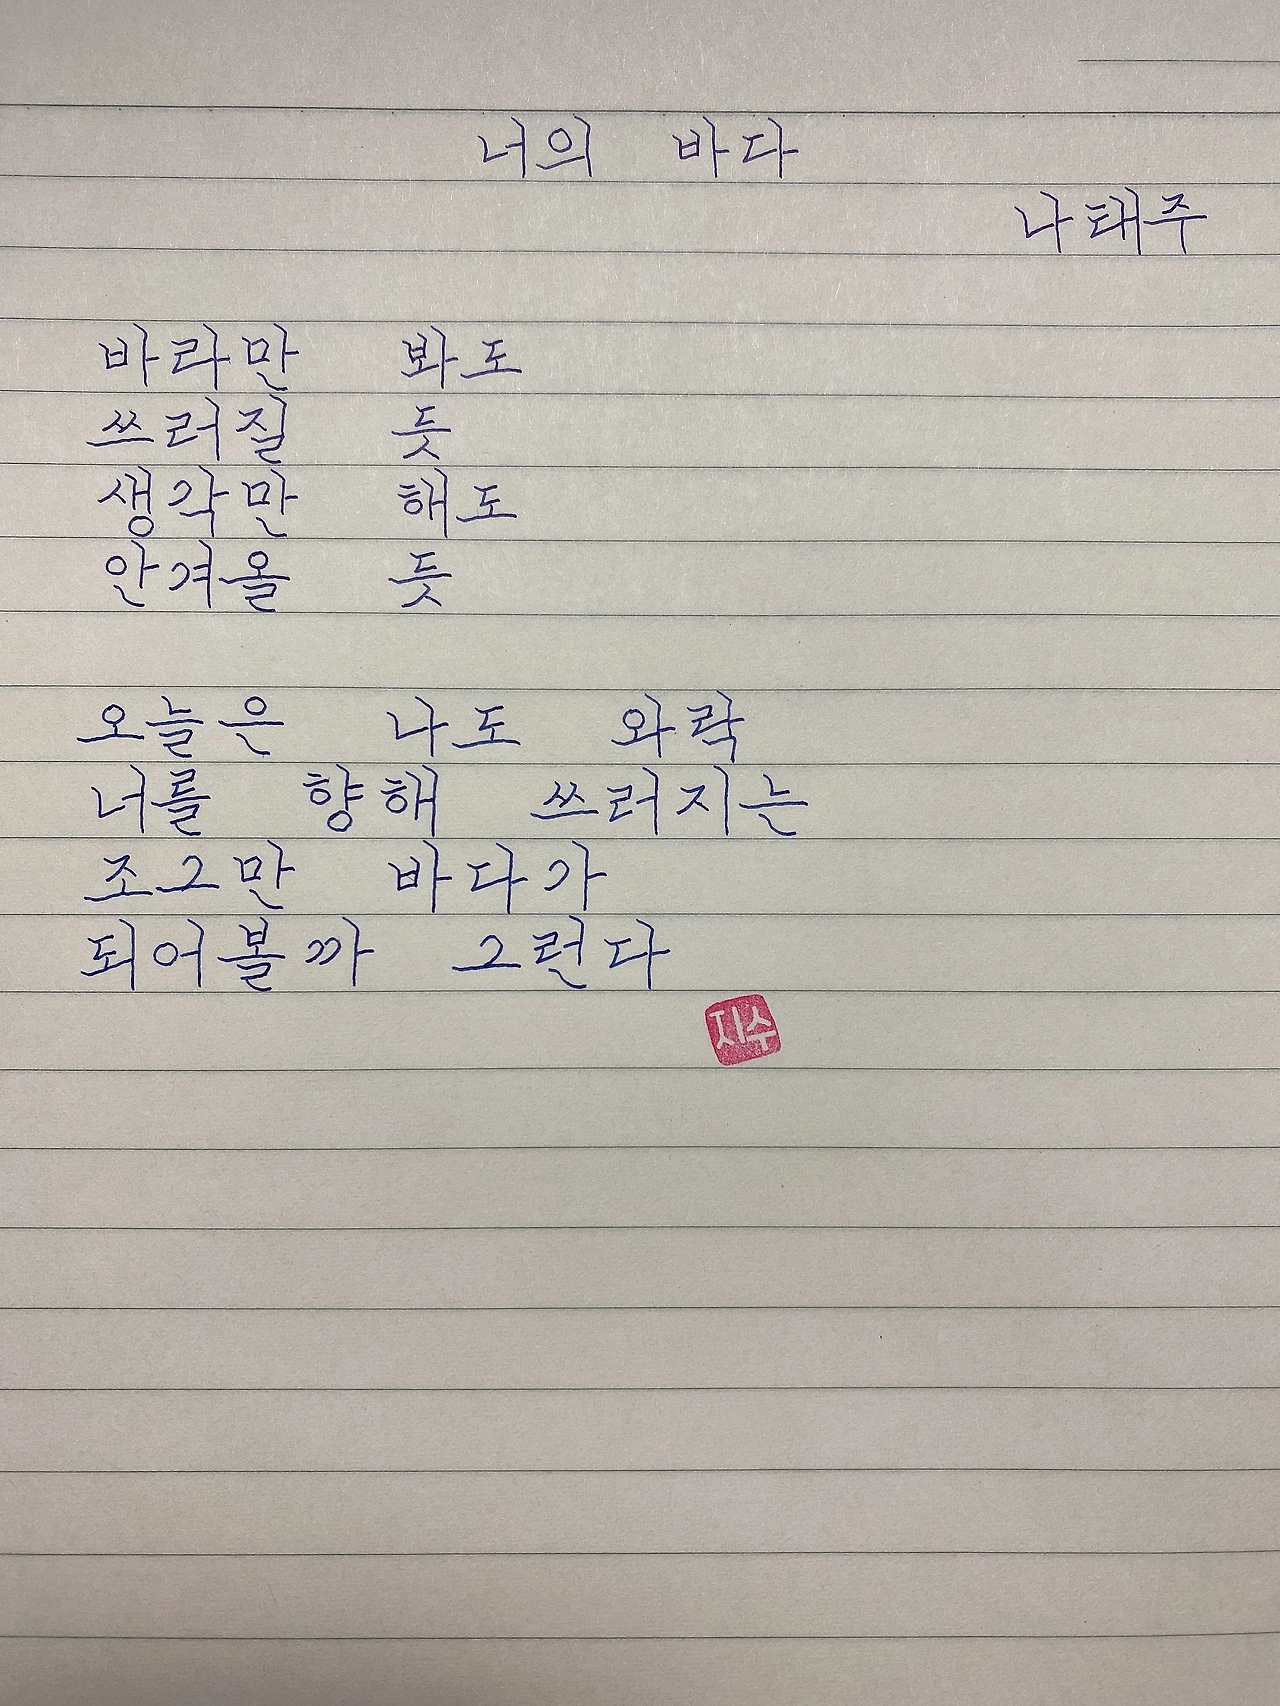 너의 바다
나태주
바라만 봐도
쓰러질 듯
생각만 해도
안겨올 듯
오늘은 나도 와락
너를 향해 쓰러지는
조그만 바다가
되어볼까 그런다
지수